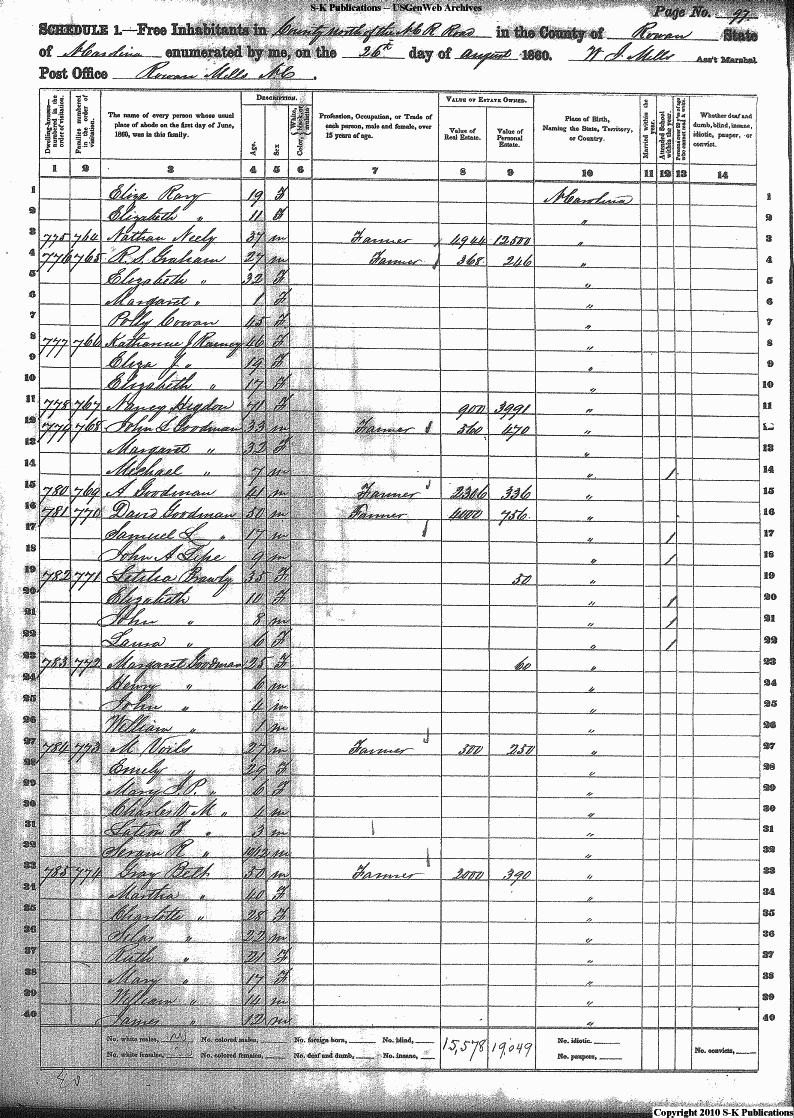 S-K Publications – USGenWeb Archives
Page No. 97
SCHEDULE 1.—Free Inhabitants in County North of the N C R Road in the County of Rowan State
of N Carolina enumerated by me, on the 26th day of August 1860. W J Mills Ass't Marshal.
Post Office Rowan Mills N C.
Dwelling-houses—numbered in the order of visitation.
Families numbered in the order of visitation.
The name of every person whose usual place of abode on the first day of June, 1860, was in this family.
DESCRIPTION.
Age.
Sex
Color, White, black, or mulatto
Profession, Occupation, or Trade of each person, male and female, over 15 years of age.
VALUE OF ESTATE OWNED.
Value of Real Estate.
Value of Personal Estate.
Place of Birth, Naming the State, Territory, or Country.
Married within the year.
Attended School within the year.
Persons over 20 y'rs of age who cannot read & write.
Whether deaf and dumb, blind, insane, idiotic, pauper, or convict.
1 2 3 4 5 6 7 8 9 10 11 12 13 14
1 Eliza Rary 19 F N Carolina 1
2 Elizabeth " 11 F " 2
3 775 764 Nathan Neely 37 m Farmer 4944 12500 " 3
4 776 765 R. S. Graham 27 m Farmer 368 246 " 4
5 Elizabeth " 32 F " 5
6 Margaret " 1 F " 6
7 Polly Cowan 45 F " 7
8 777 766 Katharine J Ramey 46 F " 8
9 Eliza J " 19 F " 9
10 Elizabeth " 17 F " 10
11 778 767 Nancy Higdon 71 F 900 3991 " 11
12 779 768 John L Goodman 33 m Farmer 560 470 " 12
13 Margaret " 32 F " 13
14 Michael " 7 m " / 14
15 780 769 A Goodman 41 m Farmer 2306 336 " 15
16 781 770 David Goodman 50 m Farmer 4000 756 " 16
17 Samuel L " 17 m " / 17
18 John A Lipe 9 m " / 18
19 782 771 Letitia Brawly 35 F 50 " 19
20 Elizabeth 10 F " / 20
21 John " 8 m " / 21
22 Laura " 6 F " / 22
23 783 772 Margaret Goodman 25 F 60 " 23
24 Henry " 6 m " 24
25 John " 4 m " 25
26 William " 1 m " 26
27 784 773 M Voils 27 m Farmer 500 250 " 27
28 Emily " 29 F " 28
29 Mary J. P. " 6 F " 29
30 Charles V. M " 4 m " 30
31 F " 3 m " 31
32 R " m " 32
33 785 774 Gray Belt 50 m Farmer 2000 390 " 33
34 Martha " 40 F " 34
35 Charlotte " 28 F " 35
36 Silas " 22 m " 36
37 Ruth " 21 F " 37
38 Mary " 17 F " 38
39 William " 14 m " 39
40 James " 12 m " 40
No. white males, No. colored males, No. foreign born, No. blind, 15,578 19,049 No. idiotic.
No. white females, No. colored females, No. deaf and dumb, No. insane, No. paupers, No. convicts,
Copyright 2010 S-K Publications